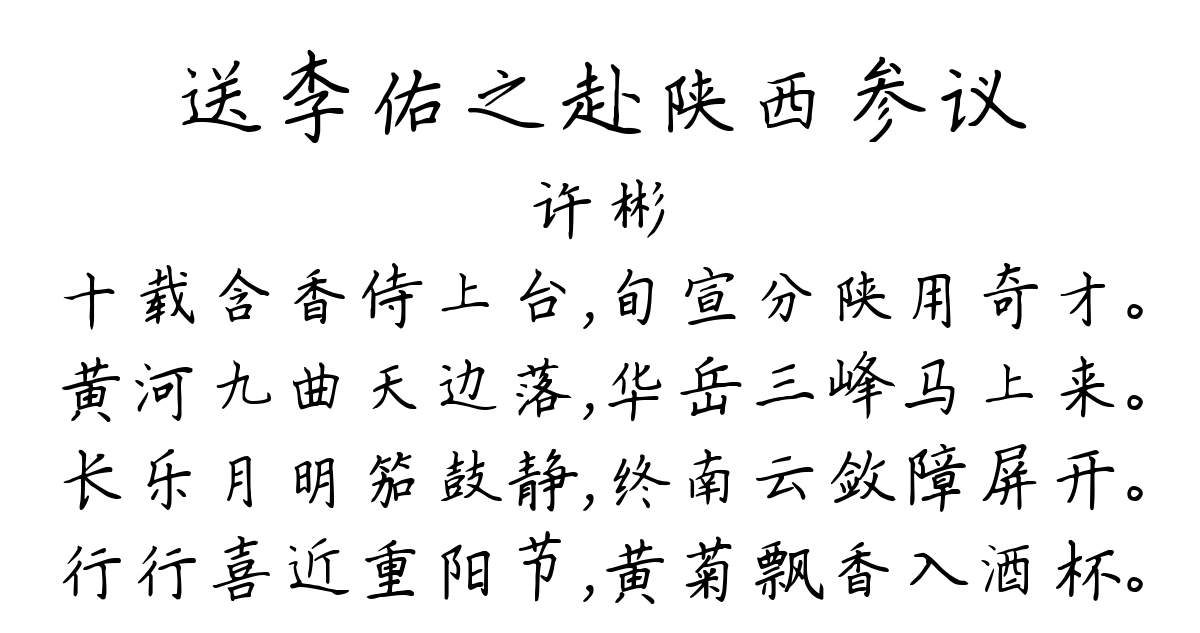 送李佑之赴陕西参议
许彬
十载含香侍上台,旬宣分陕用奇才。
黄河九曲天边落,华岳三峰马上来。
长乐月明笳鼓静,终南云敛障屏开。
行行喜近重阳节,黄菊飘香入酒杯。